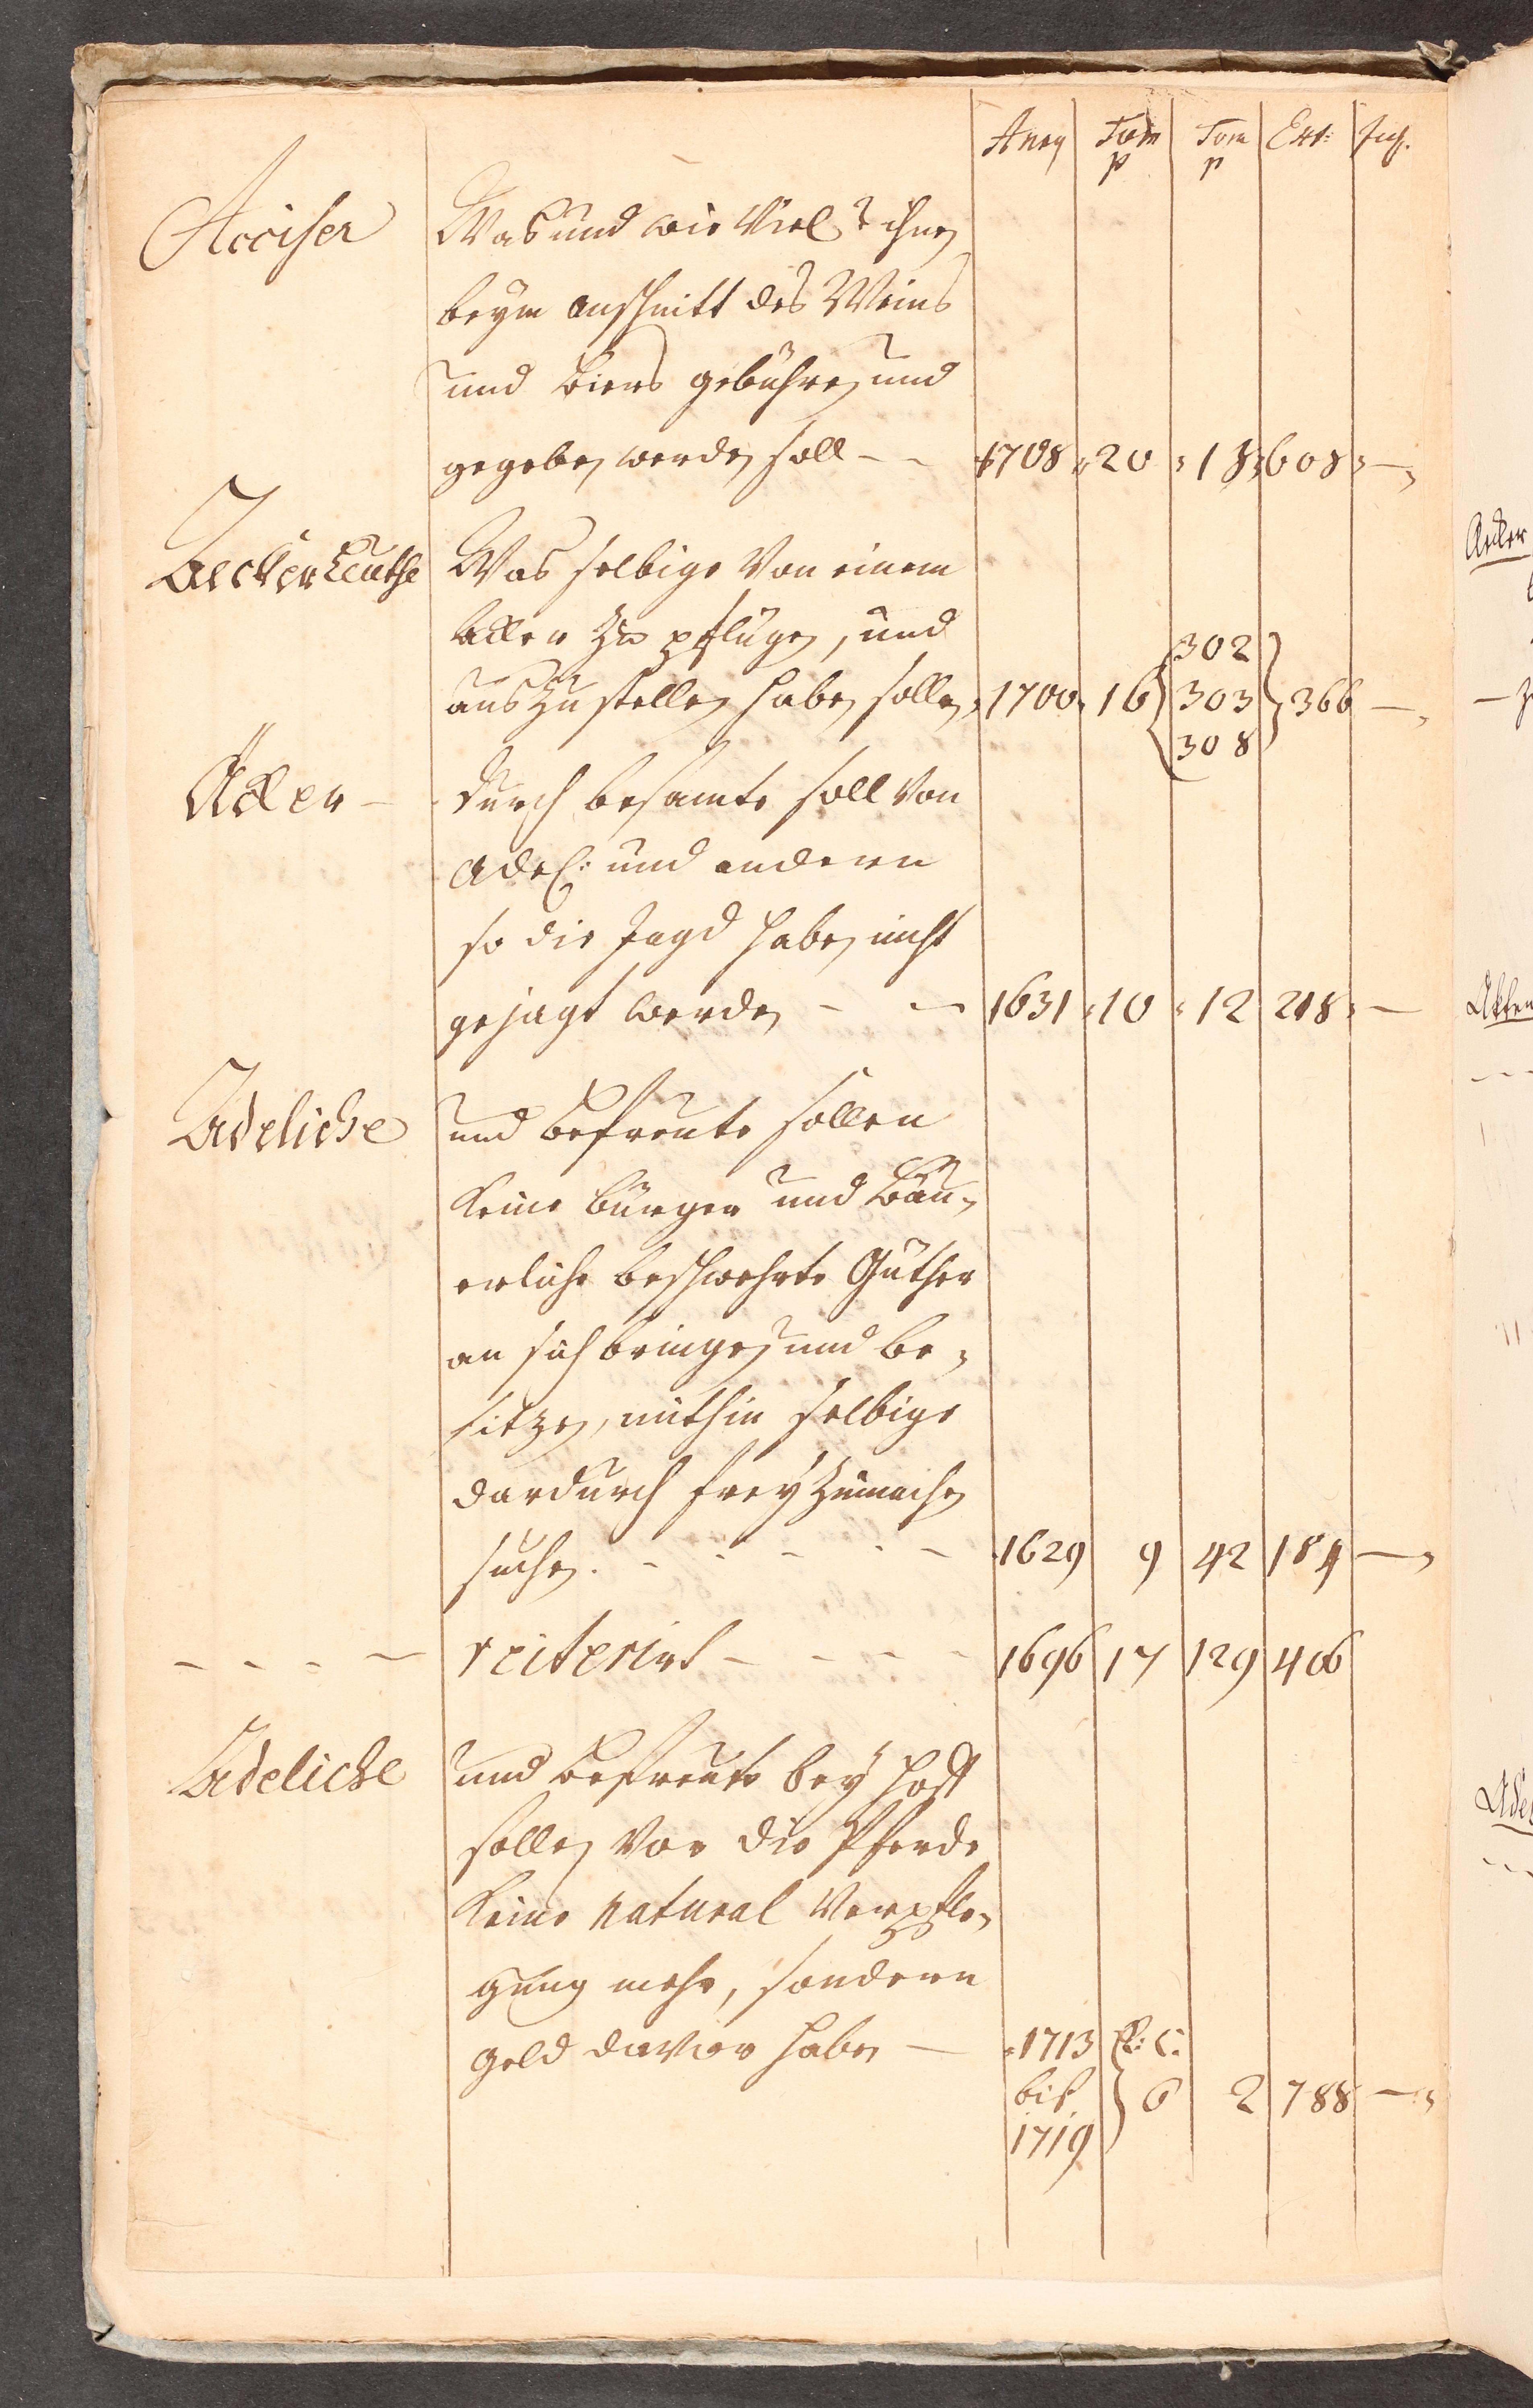 Anno Tom Tom Ext: Fasc.
p p
Acciser Was und wie Viel ihnen
beym anschnitt des Weins
und Biers gebühren und
gegeben werden soll - - 1708 20 18 608 -
AeckerLeuthe Was selbige Von einem
Acker zu pflügen, und
302
aus zu stellen haben sollen, 1700 16 303 366 -
308
Äcker - durch besamte soll von
Adel: und andern
so die Jagd haben nicht
gejagt werden - - 1631 10 12 218 -
Adeliche und befreute sollen
keine bürger und Bäu-
erliche beschwehrte Güther
an sich bringen und be-
sitzen, mithin selbige
dardurch frey zumachen
suchen. - - - - 1629 9 42 184 -
- - - - reiterirt - - - - 1696 17 129 406
Adeliche und befreute bey Hoff
sollen Vor die Pferde
keine natural Verpfle-
gung mehr, sondern
geld davor haben - 1713 R: C:
biß 6 2 788 -
1719